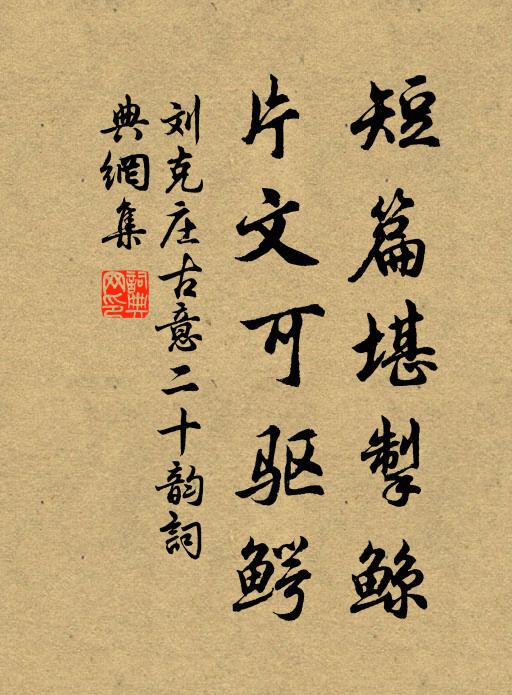 短篇堪掣鲸
片文可驱鳄
刘克庄古意二十韵詞
典網集
詞典网印